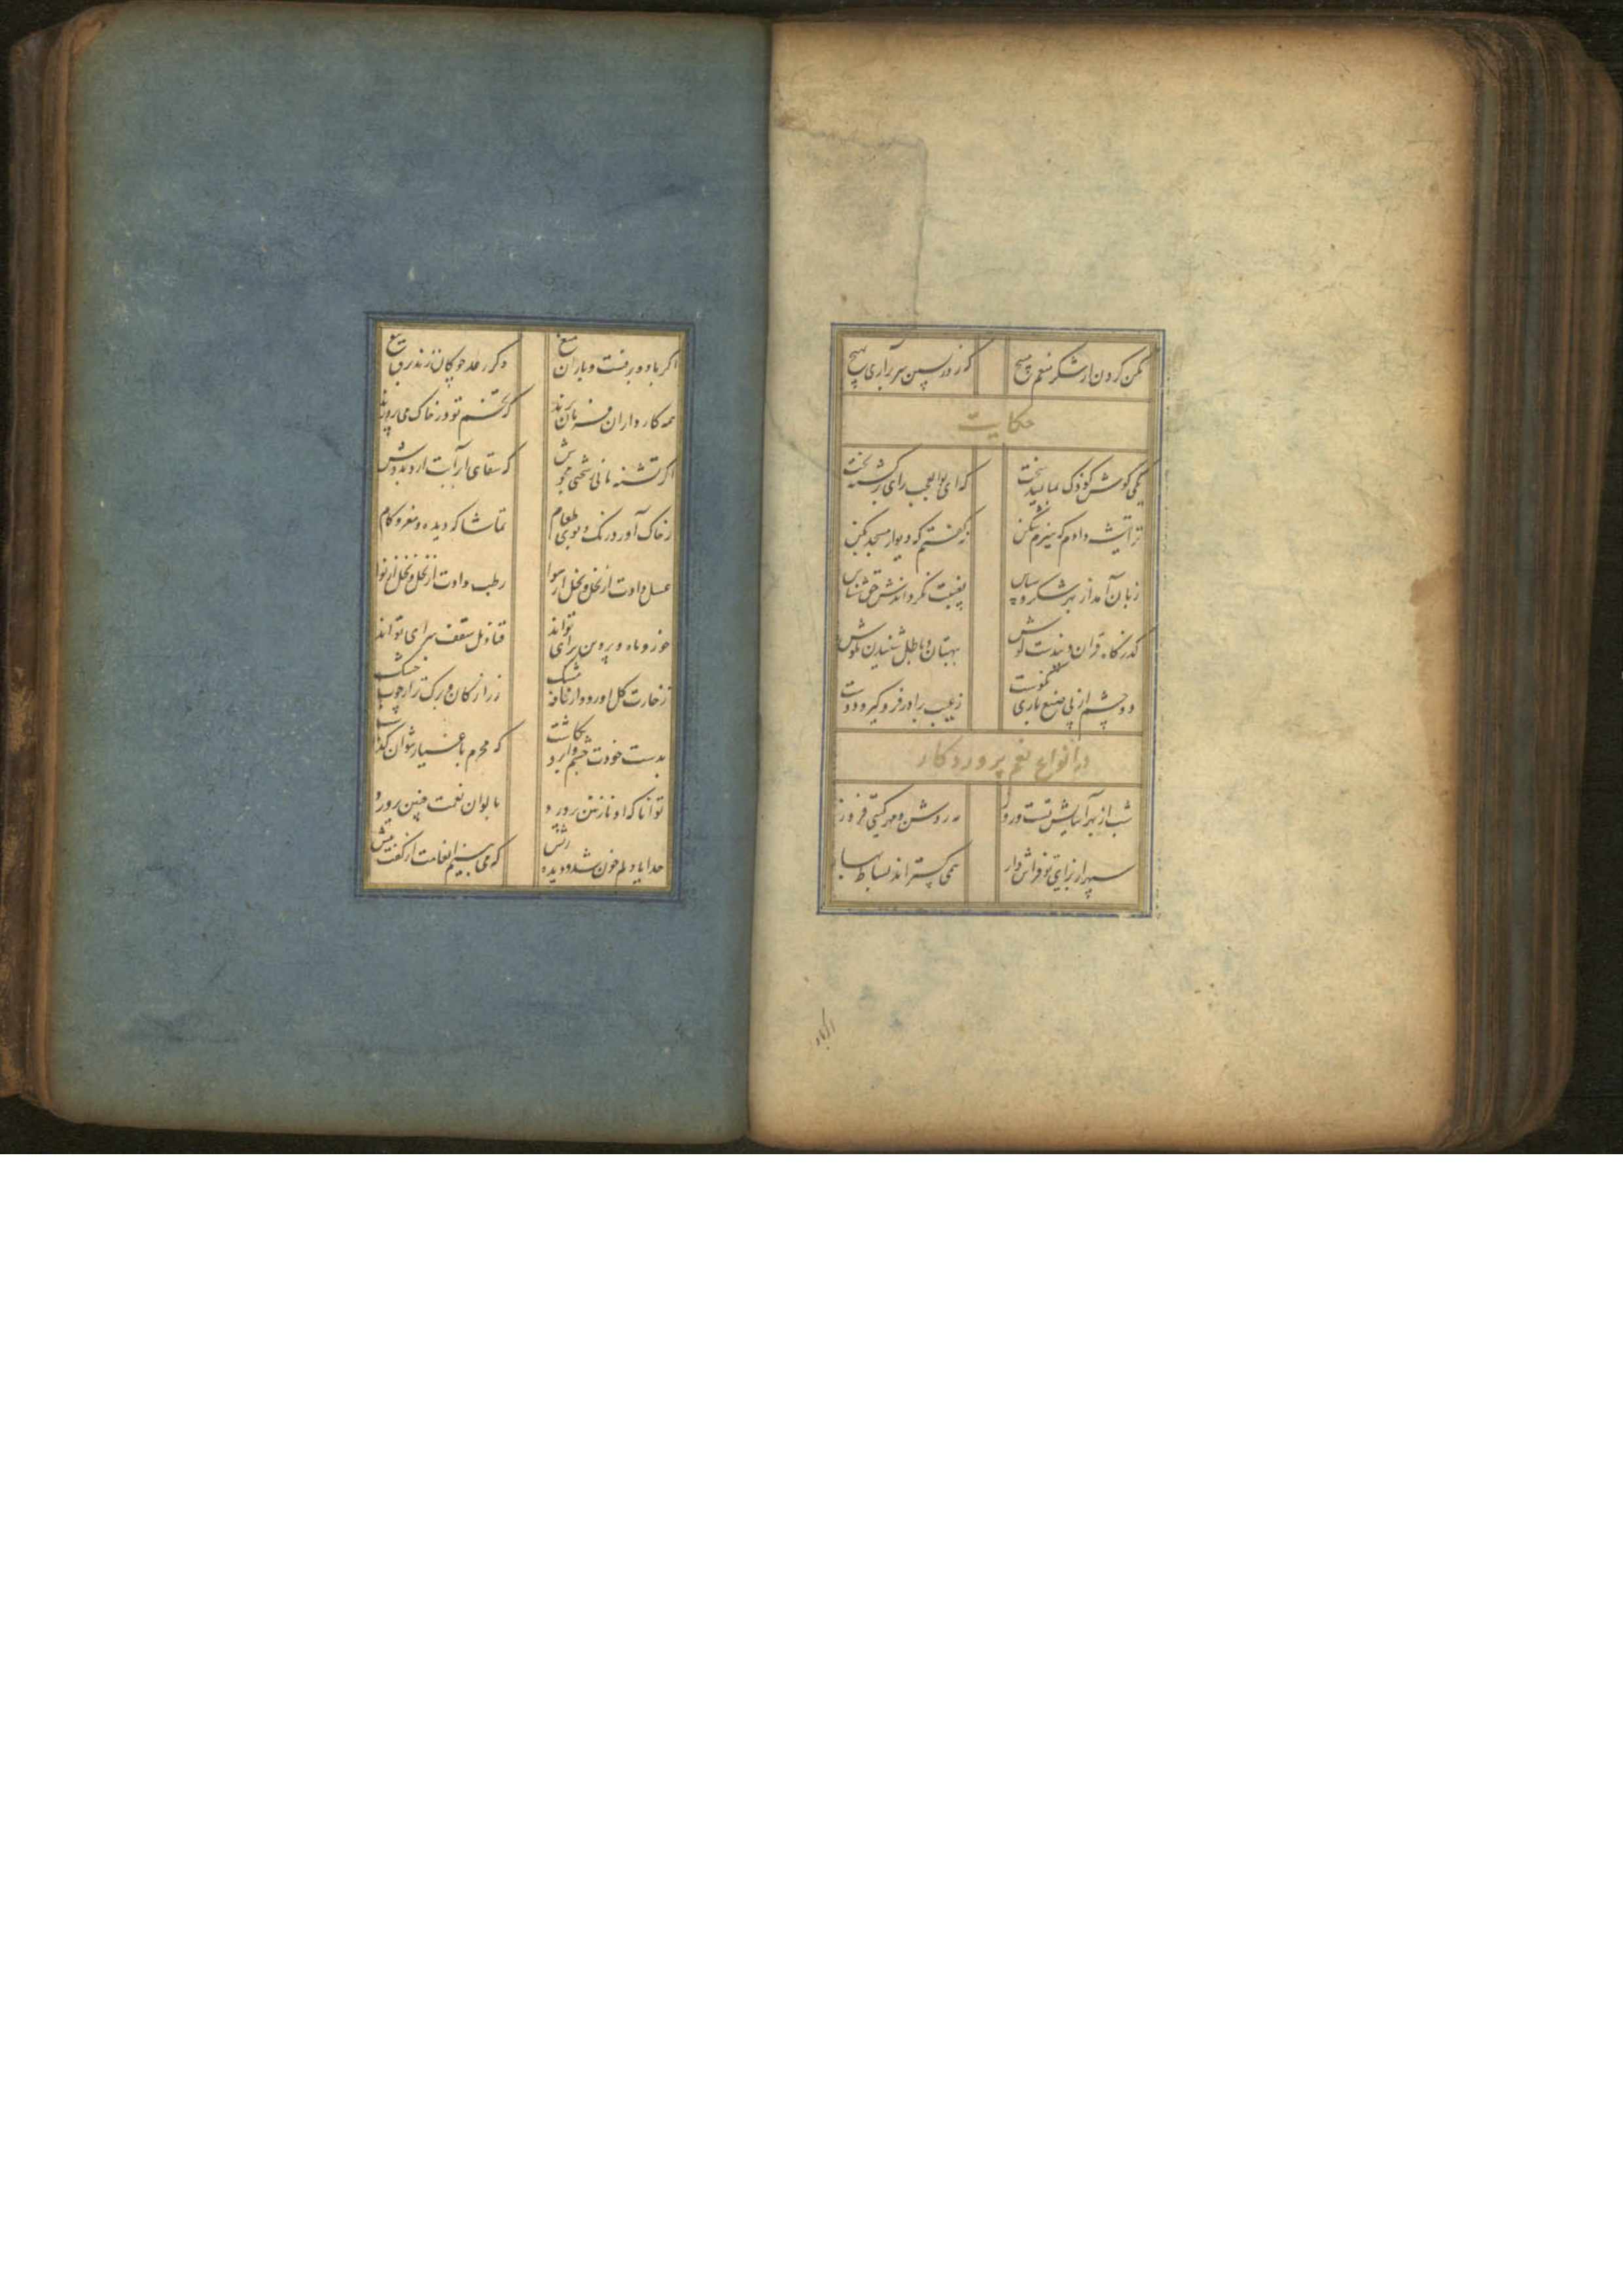 مکن گردن از شکر منعم مپیچ که روز پسین سر برآری بهیچ
حکایت
یکی گوش کودک بمالید سخت که ای بوالعجب رای برگشته بخت
ترا تیشه دادم که هیزم شکن نگفتم که دیوار مسجد بکن
زبان آمد از بهر شکر و سپاس بغیبت نگرداندش حق شناس
گذرگاه قران و پندست گوش ببهتان و باطل شنیدن مکوش
دو چشم از پی صنع باری نکوست ز عیب برادر فرو گیر و دوست
در انواع نعم پروردکار
شب از بهر آسایش تست و روز مه روشن و مهر گیتی فروز
سپهر از برای تو فراش وار همی گستراند بساط بهار
اگر باد
اگر باد و برفست و باران و میغ وگر رعد چوگان زند برق تیغ
همه کار داران فرمان برند که تخم تو در خاک می پرورند
اگر تشنه مانی ز سختی مجوش که سقای ابر آبت آرد بدوش
ز خاک آورد رنک و بوی طعام تماشاکه دیده و مغز و کام
عسل دادت از نحل و نخل از هوا رطب دادت از نخل و نخل از نوا
خور و ماه و پروین برای تواند قنادیل سقف سرای تواند
ز خارت گل آورد و از نافه مشک زر از کان و برگ تر از چوب خشک
بدست خودت چشم و ابرو نگاشت که محرم باغیار نتوان گذاشت
توانا که او نازنین پرورد بالوان نعمت چنین پرورد
خدایا دلم خون شد و دیده ریش که می بینم انعامت از گفت بیش